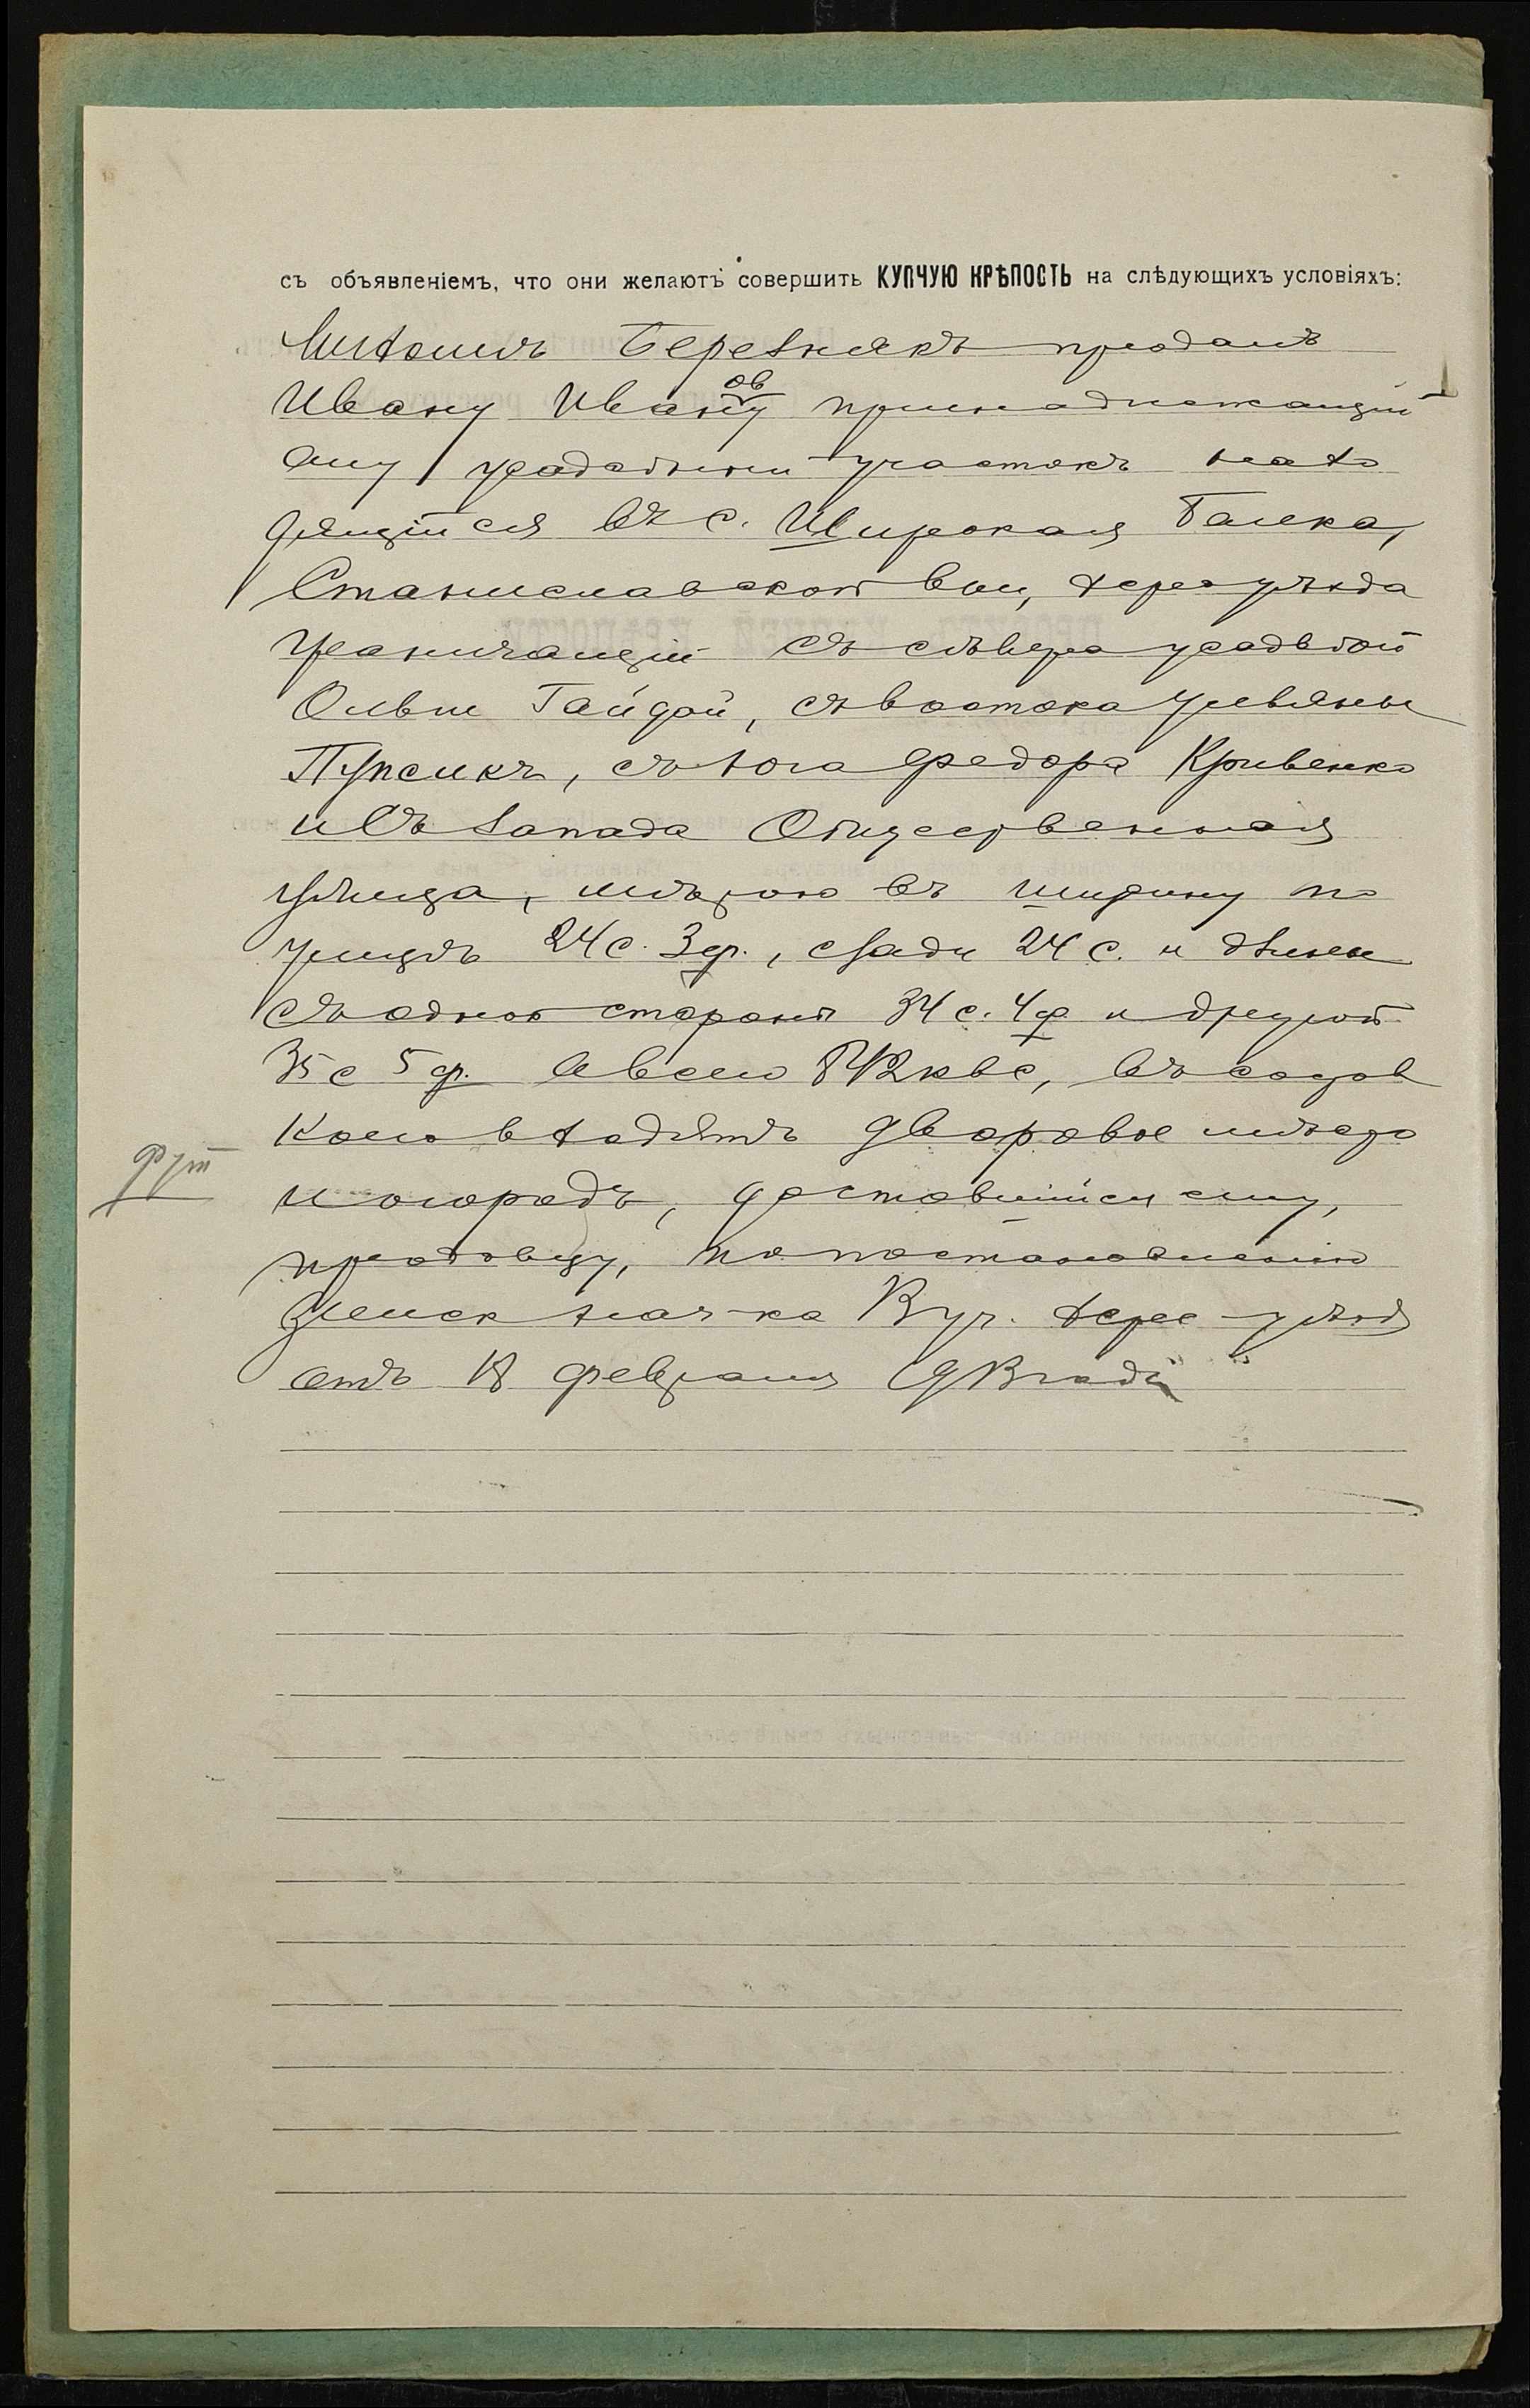 съ объявленіемъ, что они желаютъ совершить КУПЧУЮ КРѢПОСТЬ на слѣдующихъ условіяхъ:
Михаилъ Березнякъ продалъ
ов
Ивану Ивану принадлежащій
ему усадебный участокъ нахо
дящійся въ с. Широкая Балка,
Станиславской вол, Херс уѣзда
граничащій съ сѣвера усадьбой
Ольги Гайдай, съ востока Ульяны
Пупсикъ, съ юга Федора Кривенко
и съ запада Общественная
улица, мѣрою въ ширину по
улицѣ 24 с. 3 ф., сзади 24 с. и длины
съ одной стороны 34 с. 4 ф и другой
35 с 5 ф. а всего 842 квс, въ состав
коего входятъ дворовое мѣсто
фут
и огородъ, доставшійся ему,
продавцу, по постановленію
Земск нач-ка уч. Херс уѣзд
отъ 18 февраля